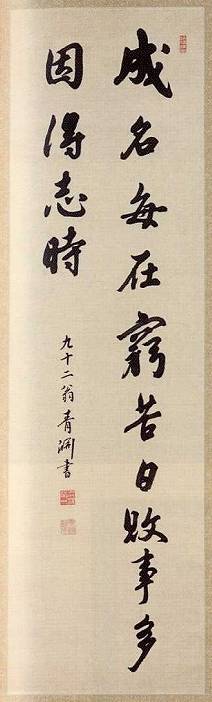 成名每在窮苦日敗事多
因得志時
九十二翁青淵書